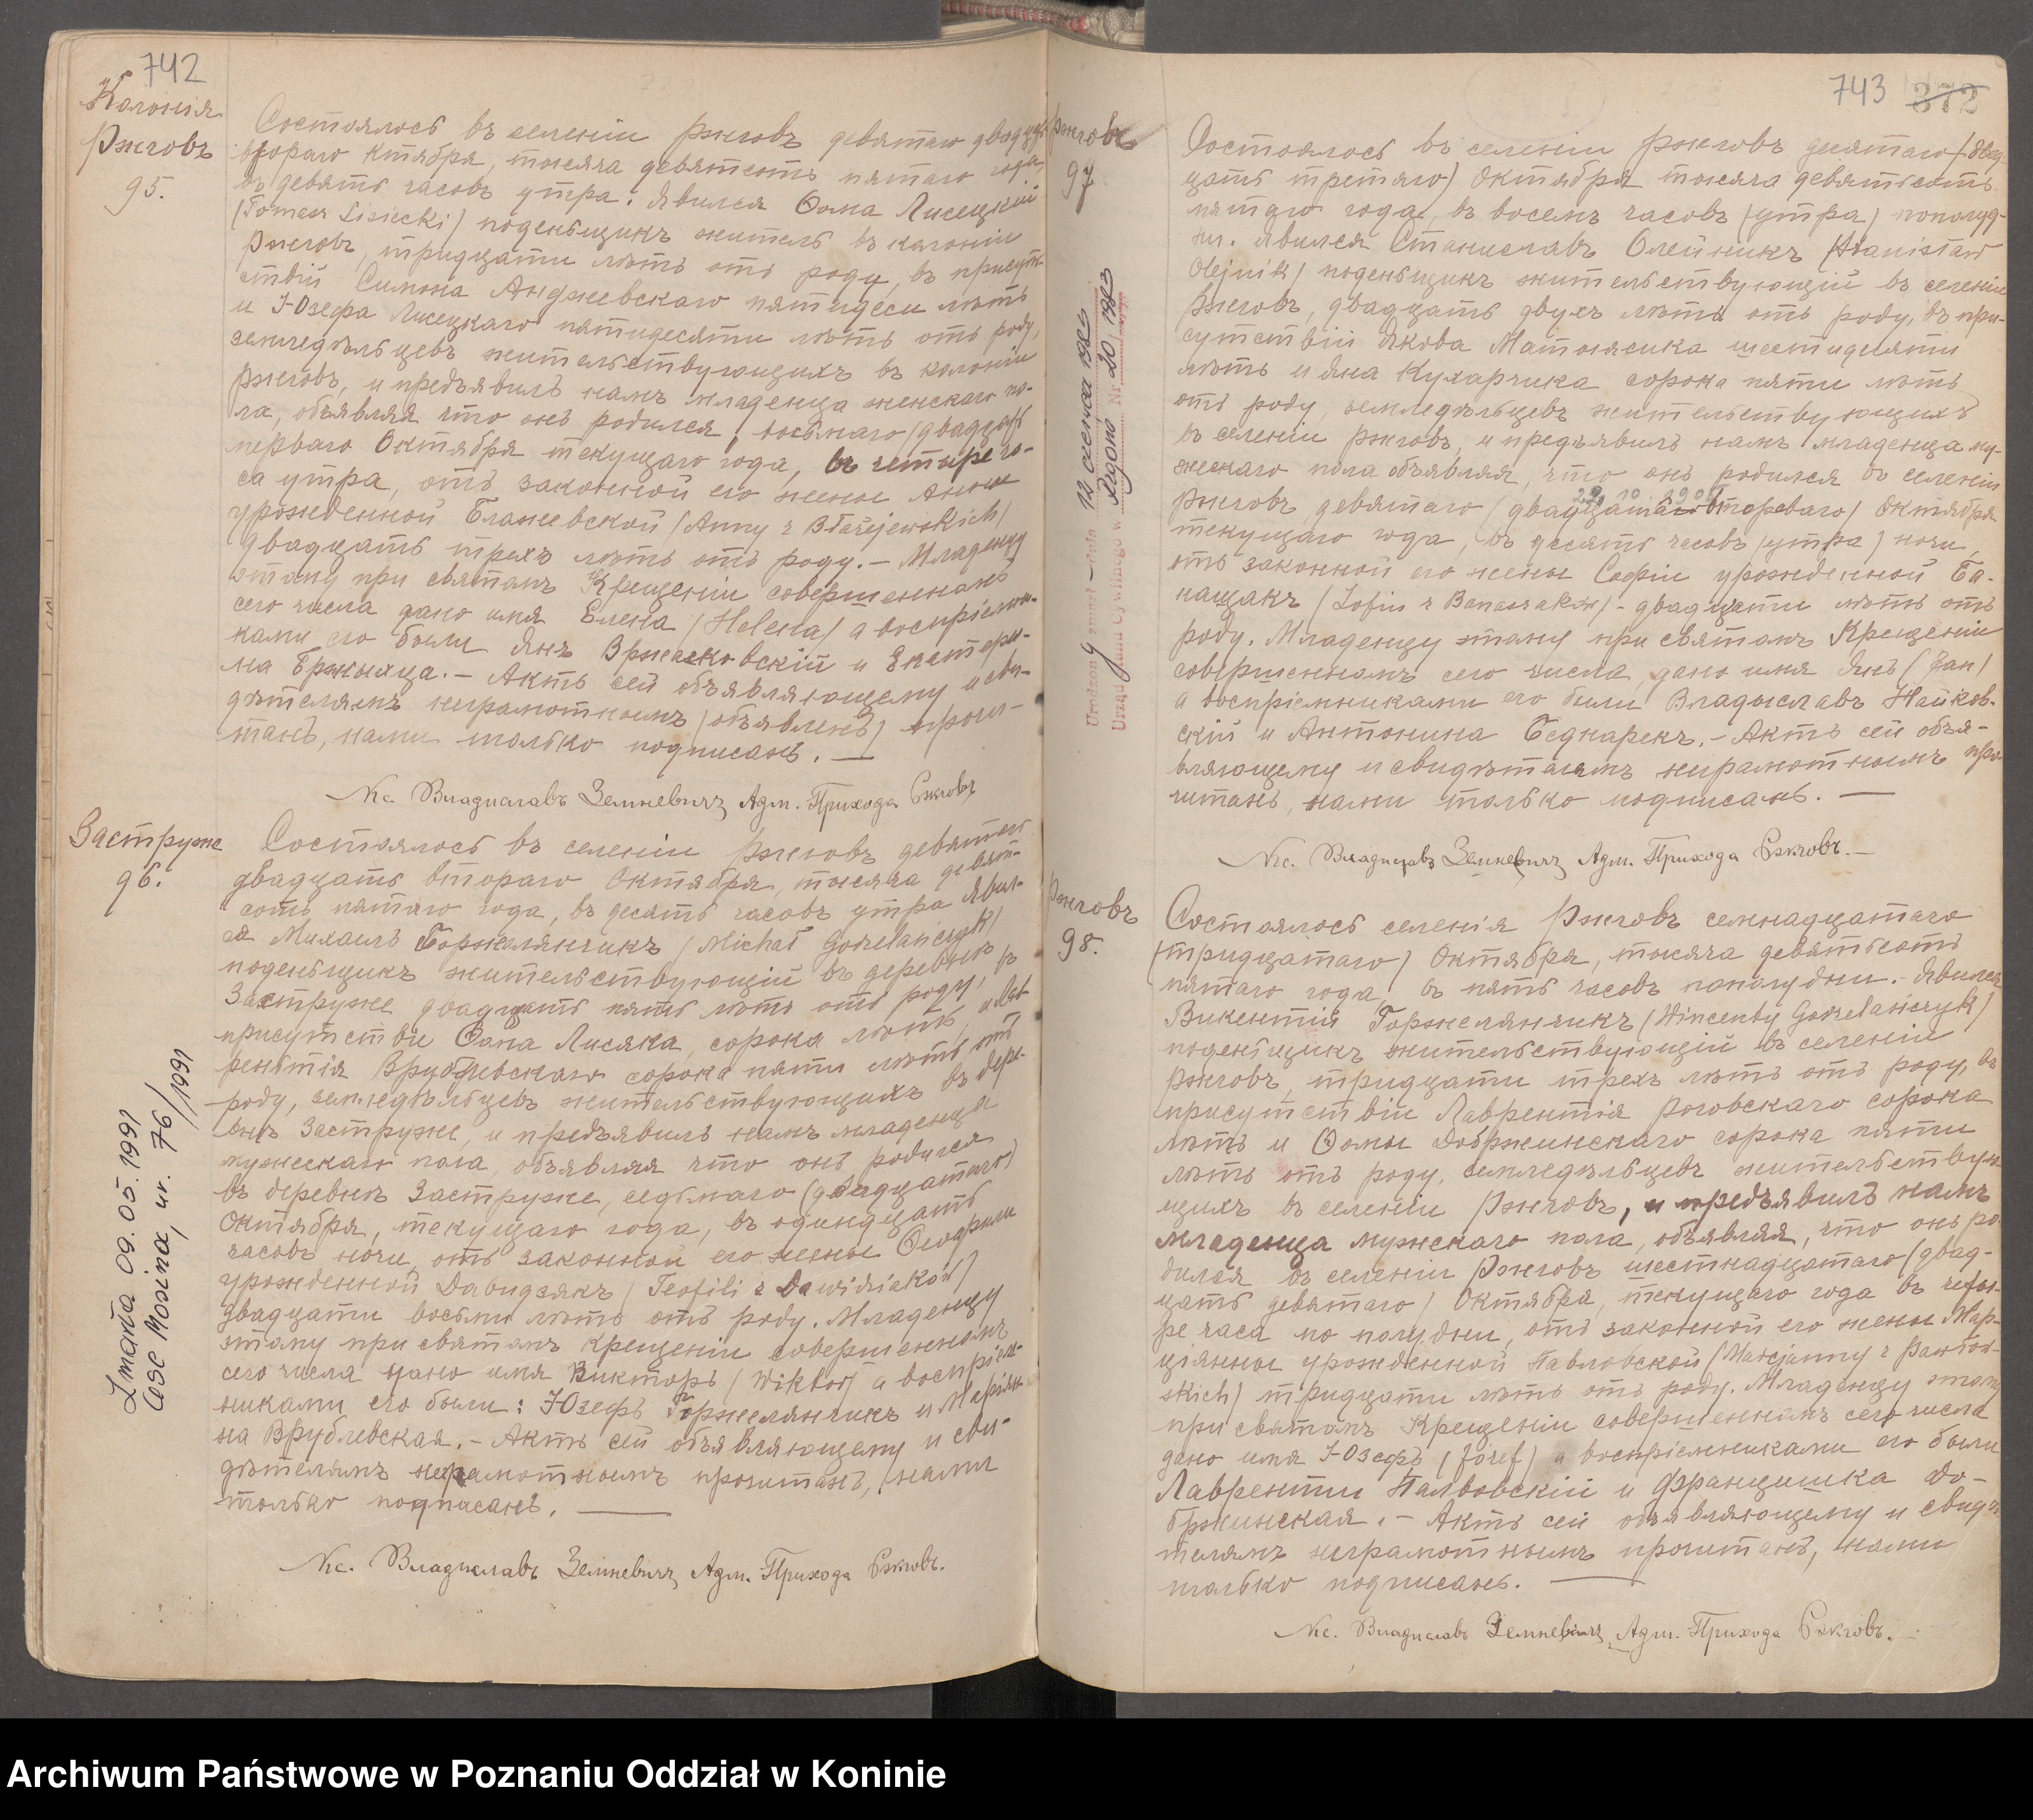 742
Колонія
Ржговъ
95.
Состоялось въ селеніи Ржговъ девятаго двадцать
втораго ктября, тысяча девятьсотъ пятаго года,
въ девять часовъ утра: Явился Ѳома Лисецкій
(Tomasz Lisiecki) поденьщикъ житель въ колоніи
Ржговъ, тридцати лѣтъ отъ роду, въ присут-
ствіи Симона Анджеевскаго пятидеси лѣтъ
и Юзефа Лисецкаго пятидесяти лѣтъ отъ роду,
земледѣльцевъ жительствующихъ въ колоніи
Ржговъ, и предъявилъ намъ младенца женскаго по-
ла, объявляя что онъ родился, восьмаго (двадцать
перваго Октября текущаго года, въ четыре ча-
са утра, отъ законной его жены Анны
урожденной Блажеевской (Anny z Błażejewskich)
двадцать трехъ лѣтъ отъ роду. – Младенцу
этому при святомъ Крещеніи совершенномъ
сего числа дано имя Елена (Helena) а воспріемни-
ками его были Янъ Вржесковскій и Екатери-
на Бржыхца. – Актъ сей объявляющему и сви-
дѣтелямъ неграмотнымъ (объявленъ) прочи-
танъ, нами только подписанъ. —
Кс. Владиславъ Земневичъ Адм. Прихода Ржговъ
Заструже
96.
Состоялось въ селеніи Ржговъ девятаго
двадцать втораго Октября, тысяча девять-
сотъ пятаго года, въ десять часовъ утра Явил-
ся Михаилъ Горжелянчикъ (Michał Gorzelańczyk)
поденьщикъ жительствующій въ деревнѣ
Заструже двадцать пять лѣтъ отъ роду, въ
присутствіи Яна Лисяка, сорока лѣтъ, и Лав-
рентія Врублевскаго сорока пяти лѣтъ отъ
роду, земледѣльцевъ жительствующихъ въ дере-
внѣ Заструже, и предъявилъ намъ младенца
мужескаго пола, объявляя что онъ родился
въ деревнѣ Заструже, седьмаго (двадцатаго)
Октября, текущаго года, въ одинадцать
часовъ ночи, отъ законной его жены Ѳеофили
урожденной Давидзякъ (Teofili z Dawidziaków)
двадцати восьми лѣтъ отъ роду. Младенцу
этому при святомъ Крещеніи совершенномъ
сего числа дано имя Викторъ (Wiktor) а воспріем-
никами его были: Юзефъ Горжелянчикъ и Маріян-
на Врублевская. – Актъ сей объявляющему и сви-
дѣтелямъ неграмотнымъ прочитанъ, нами
только подписанъ. —
Кс. Владиславъ Земневичъ Адм. Прихода Ржговъ.
Zmarła 09.05.1991
USC Mosina, nr. 76/1991
743 372
Ржговъ
97
Состоялось въ селеніи Ржговъ десятаго (двад-
цать третяго) Октября тысяча девятьсотъ
пятаго года, въ восемь часовъ (утра) пополуд-
ни. Явился Станиславъ Олейникъ (Stanisław
Olejnik) поденьщикъ жительствующій въ селеніи
Ржговъ, двадцать двухъ лѣтъ отъ роду, въ при-
сутствіи Якова Матысяка шестидесяти
лѣтъ и Яна Кухарчика сорока пяти лѣтъ
отъ роду, земледѣльцевъ жительствующихъ
въ селеніи Ржговъ, и предъявилъ намъ младенца му-
жескаго пола объявляя, что онъ родился въ селеніи
Ржговъ девятаго (двадцать втораго) Октября
текущаго года, въ десять часовъ (утра) ночи,
отъ законной его жены Софіи урожденной Ба-
нащакъ (Zofii z Banaszaków) – двадцати лѣтъ отъ
роду. Младенцу этому при святомъ Крещеніи
совершенномъ сего числа, дано имя Янъ (Jan)
а воспріемниками его были Владыславъ Найков-
скій и Антонина Беднарекъ. – Актъ сей объя-
вляющему и свидѣтелямъ неграмотнымъ про-
читанъ, нами только подписанъ. —
Кс. Владиславъ Земневичъ Адм. Прихода Ржговъ. –
Urodzony zmarł – dnia 12 czerwca 1983
Urząd Stanu Cywilnego w Rzgowie Nr 20/1983
Ржговъ
98.
Состоялось селенія Ржговъ семнадцатаго
(тридцатаго) Октября, тысяча девятьсотъ
пятаго года, въ пять часовъ пополудни. – Явился
Викентій Горжелянчикъ (Wincenty Gorzelańczyk)
поденьщикъ жительствующій въ селеніи
Ржговъ, тридцати трехъ лѣтъ отъ роду, въ
присутствіи Лаврентія Роговскаго сорока
лѣтъ и Ѳомы Добржинскаго сорока пяти
лѣтъ отъ роду, земледѣльцевъ жительствую-
щихъ въ селеніи Ржговъ, и предъявилъ намъ
младенца мужескаго пола, объявляя, что онъ ро-
дился въ селеніи Ржговъ шестнадцатаго (двад-
цать девятаго) Октября, текущаго года въ четы-
ре часа по полудни, отъ законной его жены Мар-
ціянны урожденной Павловской (Marcjanny z Pawłow-
skich) тридцати лѣтъ отъ роду. Младенцу этому
при святомъ Крещеніи совершенномъ сего числа
дано имя Юзефъ (Józef) а воспріемниками его были
Лаврентій Палвовскій и Францишка До-
бржинская. – Актъ сей объявляющему и свидѣ-
телямъ неграмотнымъ прочитанъ, нами
только подписанъ. —
Кс. Владиславъ Земневичъ, Адм. Прихода Ржговъ. –
Archiwum Państwowe w Poznaniu Oddział w Koninie